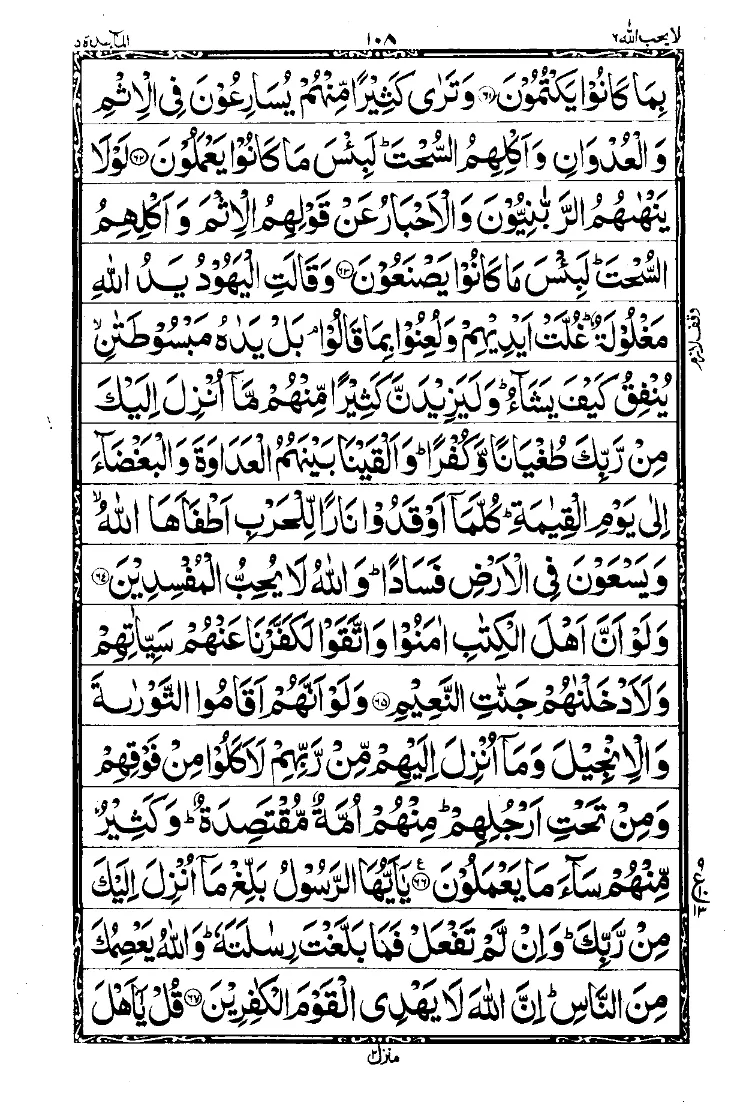 لا يحب الله ٦
١٠٨
المآئدة ٥
بِمَا كَانُوْا يَكْتُمُوْنَ ﴿٦١﴾ وَتَرٰى كَثِيْرًا مِّنْهُمْ يُسَارِعُوْنَ فِى الْاِثْمِ
وَالْعُدْوَانِ وَاَكْلِهِمُ السُّحْتَ ؕ لَبِئْسَ مَا كَانُوْا يَعْمَلُوْنَ ﴿٦٢﴾ لَوْلَا
يَنْهٰىهُمُ الرَّبّٰنِيُّوْنَ وَالْاَحْبَارُ عَنْ قَوْلِهِمُ الْاِثْمَ وَاَكْلِهِمُ
السُّحْتَ ؕ لَبِئْسَ مَا كَانُوْا يَصْنَعُوْنَ ﴿٦٣﴾ وَقَالَتِ الْيَهُوْدُ يَدُ اللّٰهِ
مَغْلُوْلَةٌ ؕ غُلَّتْ اَيْدِيْهِمْ وَلُعِنُوْا بِمَا قَالُوْا ۘ بَلْ يَدٰهُ مَبْسُوْطَتٰنِ ۙ
وقف لازم
يُنْفِقُ كَيْفَ يَشَآءُ ؕ وَلَيَزِيْدَنَّ كَثِيْرًا مِّنْهُمْ مَّآ اُنْزِلَ اِلَيْكَ
مِنْ رَّبِّكَ طُغْيَانًا وَّكُفْرًا ؕ وَاَلْقَيْنَا بَيْنَهُمُ الْعَدَاوَةَ وَالْبَغْضَآءَ
اِلٰى يَوْمِ الْقِيٰمَةِ ؕ كُلَّمَآ اَوْقَدُوْا نَارًا لِّلْحَرْبِ اَطْفَاَهَا اللّٰهُ ۙ
وَيَسْعَوْنَ فِى الْاَرْضِ فَسَادًا ؕ وَاللّٰهُ لَا يُحِبُّ الْمُفْسِدِيْنَ ﴿٦٤﴾
وَلَوْ اَنَّ اَهْلَ الْكِتٰبِ اٰمَنُوْا وَاتَّقَوْا لَكَفَّرْنَا عَنْهُمْ سَيِّاٰتِهِمْ
وَلَاَدْخَلْنٰهُمْ جَنّٰتِ النَّعِيْمِ ﴿٦٥﴾ وَلَوْ اَنَّهُمْ اَقَامُوا التَّوْرٰىةَ
وَالْاِنْجِيْلَ وَمَآ اُنْزِلَ اِلَيْهِمْ مِّنْ رَّبِّهِمْ لَاَكَلُوْا مِنْ فَوْقِهِمْ
وَمِنْ تَحْتِ اَرْجُلِهِمْ ؕ مِنْهُمْ اُمَّةٌ مُّقْتَصِدَةٌ ؕ وَكَثِيْرٌ
مِّنْهُمْ سَآءَ مَا يَعْمَلُوْنَ ﴿٦٦﴾ ع يٰٓاَيُّهَا الرَّسُوْلُ بَلِّغْ مَآ اُنْزِلَ اِلَيْكَ
مِنْ رَّبِّكَ ؕ وَاِنْ لَّمْ تَفْعَلْ فَمَا بَلَّغْتَ رِسٰلَتَهٗ ؕ وَاللّٰهُ يَعْصِمُكَ
مِنَ النَّاسِ ؕ اِنَّ اللّٰهَ لَا يَهْدِى الْقَوْمَ الْكٰفِرِيْنَ ﴿٦٧﴾ قُلْ يٰٓاَهْلَ
منزل ٢